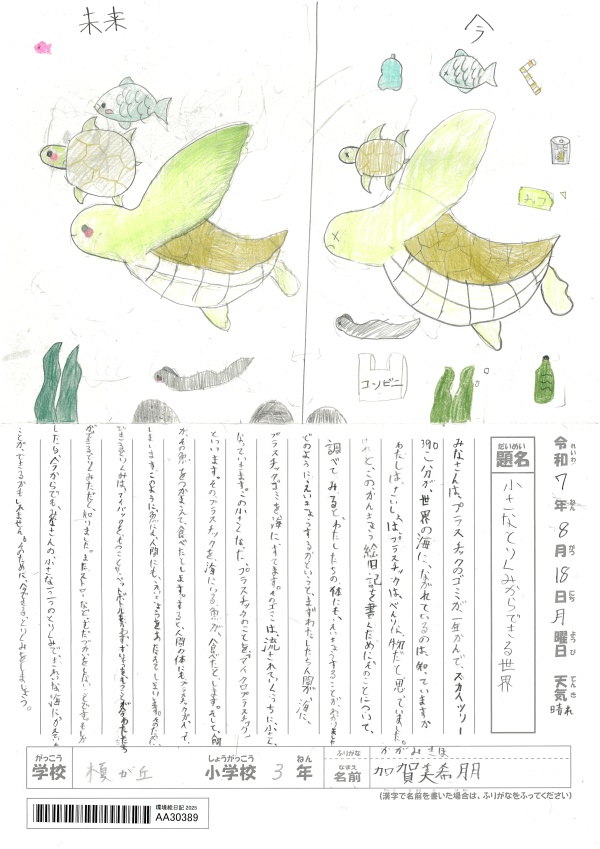 未来
今
ナップ
コンビニ
れいわ ねん がつ にち ようび てんき
令和7年8月18日月曜日 天気 晴れ
だいめい
題名
小さなとりくみからできる世界
みなさんは、プラスチックのゴミが一年かんで、スカイツリー
390こ分が、世界の海に、ながれているのは、知っていますか
わたしは、さいしょは、プラスチックは、べんりな物だと思っていました。
けれど、このかんきょう絵日記を書くために、そのことについて、
調べてみるとわたしたちの、体にも、えいきょうすることが、分かりました
どのようにえいきょうするかというと、まずわたしたち人間が、海に、
プラスチックゴミを海に、すてます。そのゴミは、流されていくうちに小さく
なっていきます。この小さくなった、プラスチックのことを、マイクロプラスチック
といいます。そのプラスチックを海にいる魚が、食べたりします。そして、人間
が、その魚をつかまえて、食べたりします。すると、人間の体にも、プラスチックがたまって、
しまいます。このように魚にも、人間にも、えいきょうをあたえてしまいます。そのため、
できるとりくみは、マイバッグをもつことや、ペットボトルをへらす、すいとうをもつことが、今わたしたち
ができるとりくみだと、知りました。またストローなど、むだづかいをしないことです。もしか
したら、今からでも、みなさんの、小さな一つ一つのとりくみで、きれいな海にかえる
ことが、できるかもしれません。そのために、今できるとりくみをしましょう。
がっこう しょうがっこう ねん ふりがな かがみきほ
学校 榎が丘 小学校 3年 なまえ 名前 加賀美希朋
(漢字で名前を書いた場合は、ふりがなをふってください)
環境絵日記 2025
AA30389